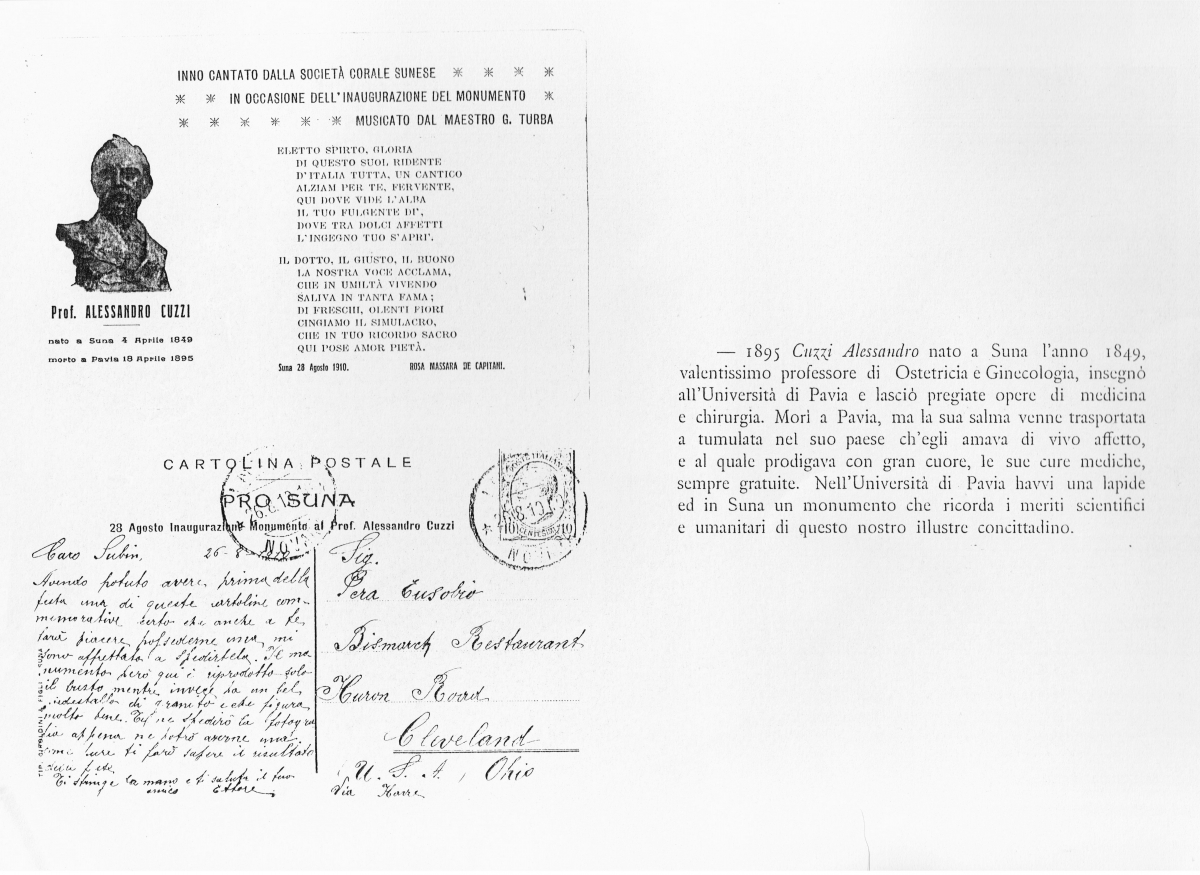 INNO CANTATO DALLA SOCIETÀ CORALE SUNESE
IN OCCASIONE DELL'INAUGURAZIONE DEL MONUMENTO
MUSICATO DAL MAESTRO G. TURBA
ELETTO SPIRTO, GLORIA
DI QUESTO SUOL RIDENTE
D'ITALIA TUTTA, UN CANTICO
ALZIAM PER TE, FERVENTE,
QUI DOVE VIDE L'ALBA
IL TUO FULGENTE DI',
DOVE TRA DOLCI AFFETTI
L'INGEGNO TUO S'APRI'.
IL DOTTO, IL GIUSTO, IL BUONO
LA NOSTRA VOCE ACCLAMA,
CHE IN UMILTÀ VIVENDO
SALIVA IN TANTA FAMA;
DI FRESCHI, OLENTI FIORI
CINGIAMO IL SIMULACRO,
CHE IN TUO RICORDO SACRO
QUI POSE AMOR PIETÀ.
Suna 28 Agosto 1910. ROSA MASSARA DE CAPITANI.
Prof. ALESSANDRO CUZZI
nato a Suna 4 Aprile 1849
morto a Pavia 18 Aprile 1895
CARTOLINA POSTALE
PRO SUNA
28 Agosto Inaugurazione Monumento al Prof. Alessandro Cuzzi
Caro Subin, 26-8-
Avendo potuto avere, prima della
festa una di queste cartoline com-
memorative certo che anche a te
sarà piacere possederne una, mi
sono affrettato a spedirtela. Il mo
numento però qui è riprodotto solo
il busto, mentre invece ha un bel
di granito e che figura
molto bene. Te ne spedirò la fotogra
fia appena ne potrò averne una
pure ti farò sapere il risultato
Ti stringe la mano e ti saluta il tuo
amico Ettore
Sig.
Pera Eusobio
Bismarck Restaurant
Huron Road
Cleveland
U. S. A., Ohio
Via Havre
— 1895 Cuzzi Alessandro nato a Suna l'anno 1849,
valentissimo professore di Ostetricia e Ginecologia, insegnò
all'Università di Pavia e lasciò pregiate opere di medicina
e chirurgia. Morì a Pavia, ma la sua salma venne trasportata
a tumulata nel suo paese ch'egli amava di vivo affetto,
e al quale prodigava con gran cuore, le sue cure mediche,
sempre gratuite. Nell'Università di Pavia havvi una lapide
ed in Suna un monumento che ricorda i meriti scientifici
e umanitari di questo nostro illustre concittadino.